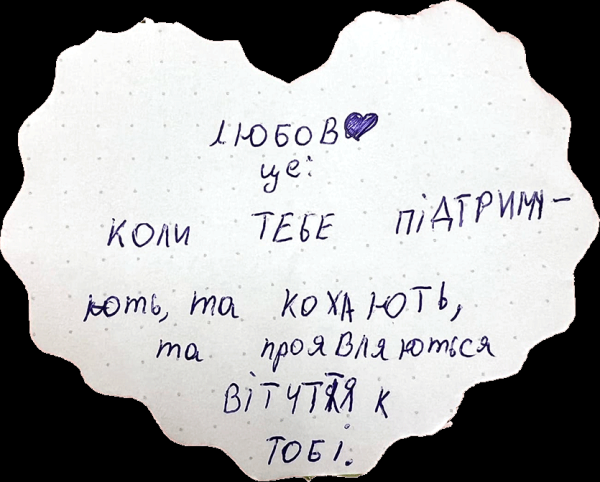 ЛЮБОВ
це:
КОЛИ ТЕБЕ ПІДТРИМУ-
ють, та КОХАЮТЬ,
та проявляються
ВІТЧТТЯ К
ТОБІ.